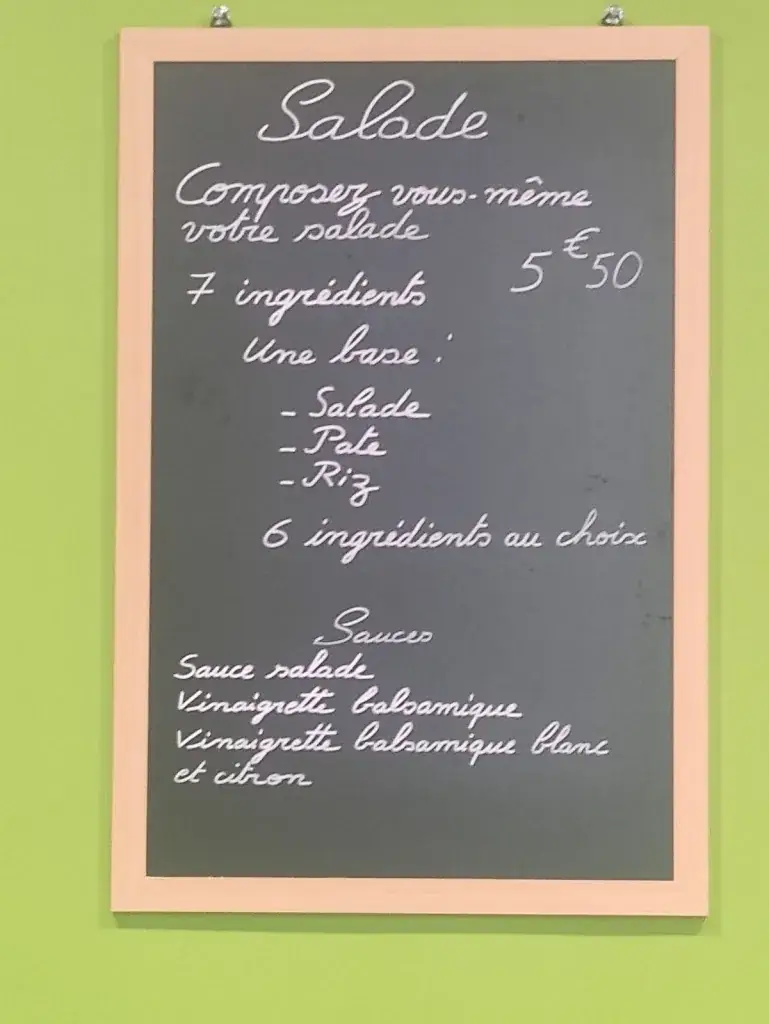 Salade
Composez vous-même
votre salade
5€50
7 ingrédients
Une base :
- Salade
- Pate
- Riz
6 ingrédients au choix
Sauces
Sauce salade
Vinaigrette balsamique
Vinaigrette balsamique blanc
et citron